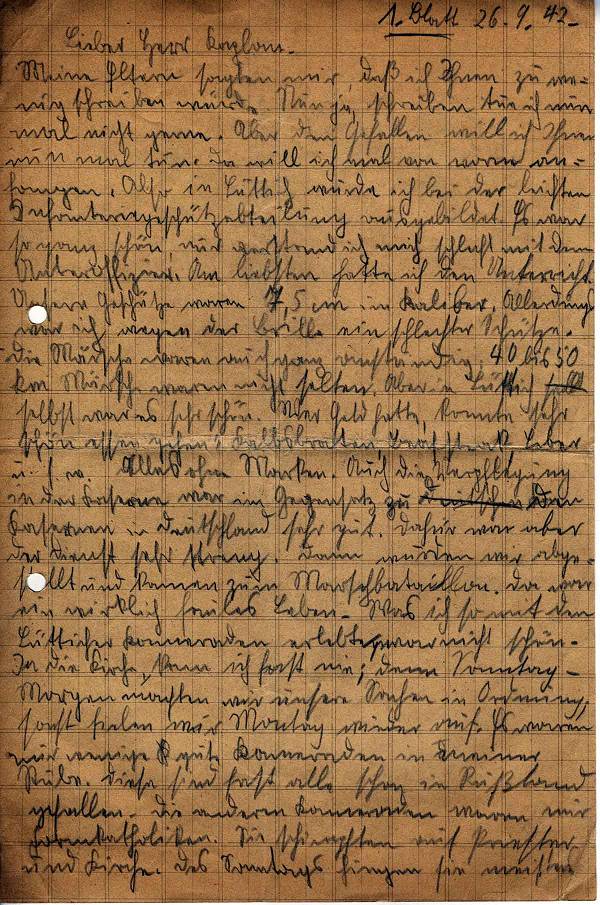 1. Blatt 26.9.42.-
Lieber Herr Kaplan.
Meine Eltern sagten mir, daß ich Ihnen zu we-
nig schreiben würde. Nun ja, schreiben tue ich nun
mal nicht gerne. Aber den Gefallen will ich Ihnen
nun mal tun. Da will ich mal von vorne an-
fangen. Also in Lüttich wurde ich bei der leichten
Infanteriegeschützabteilung ausgebildet. Es war
so ganz schön, nur verstand ich mich schlecht mit dem
Unteroffizier. Am liebsten hatte ich den Unterricht.
Unsere Geschütze waren 7,5 cm in Kaliber. Allerdings
war ich wegen der Brille ein schlechter Schütze.
Die Märsche waren auch ganz anständig, 40 bis 50
km Märsche waren nicht selten. Aber in Lüttich
selbst war es sehr schön. Wer Geld hatte, konnte sehr
schön essen gehen; Kalbsbraten, Beefsteak, Leber
u.s.w. Alles ohne Marken. Auch die Verpflegung
in der Kaserne war im Gegensatz zu den
Kasernen in Deutschland sehr gut. Dafür war aber
der Dienst sehr streng. Dann wurden wir abge-
stellt und kamen zum Marschbataillon. Da war
ein wirklich faules Leben. Was ich so mit den
Lütticher Kameraden erlebte, war nicht schön.
In die Kirche kam ich fast nie; denn Sonntag-
Morgen machten wir unsere Sachen in Ordnung,
sonst fielen wir Montag wieder auf. Es waren
nur wenige gute Kameraden in meiner
Stube. Diese sind fast alle schon in Rußland
gefallen. Die anderen Kameraden waren nur
Sie schimpften auf Priester
und Kirche. Des Sonntags gingen sie meistens